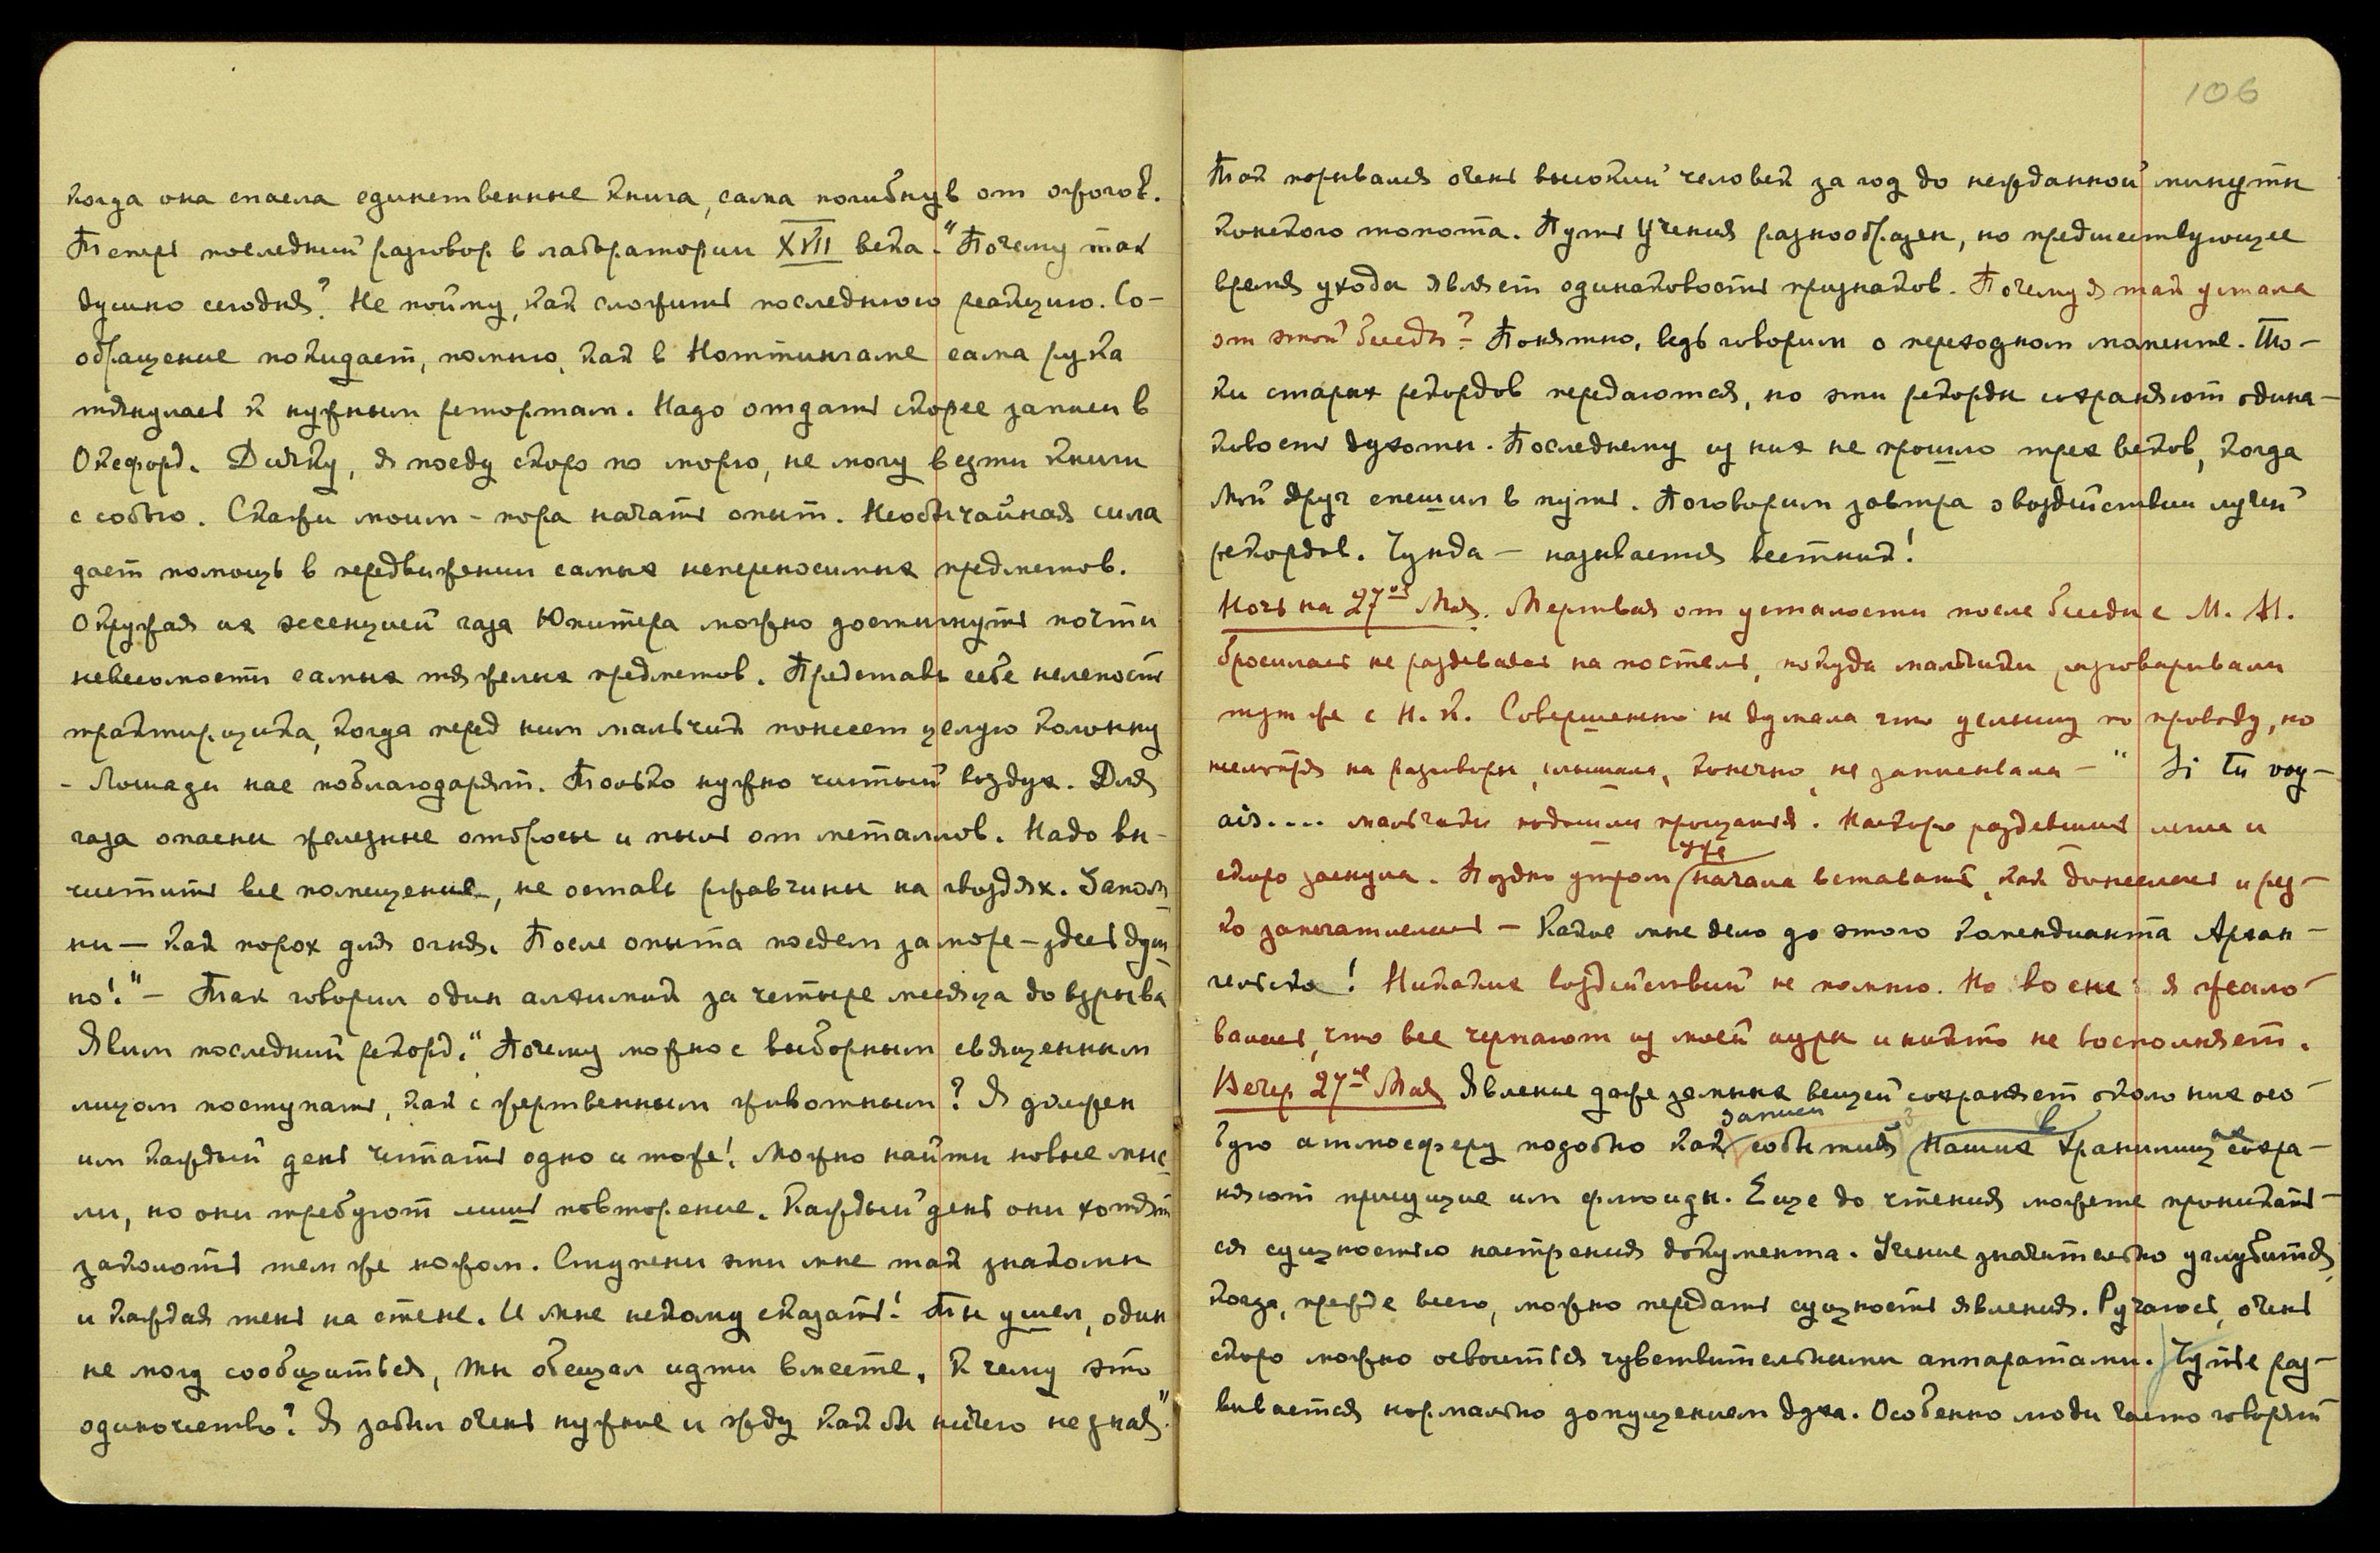 когда она спасла единственные книги, сама погибнув от ожогов.
Теперь последний разговор в лаборатории XVII века. "Почему так
душно сегодня? Не пойму, как сложить последнюю реакцию. Со-
ображение покидает, помню, как в Ноттингаме сама рука
тянулась к нужным ретортам. Надо отдать скорее записи в
Оксфорд. Дикку, я поеду скоро по морю, не могу везти книги
с собою. Скажи моим - пора начать опыт. Необычайная сила
дает помощь в передвижении самых непереносимых предметов.
Окружая их эссенцией газа Юпитера можно достигнуть почти
невесомости самых тяжелых предметов. Представь себе нелепость
трактирщика, когда перед ним мальчик понесет целую колонну
- Лошади нас поблагодарят. Только нужно чистый воздух. Для
газа опасны железные отбросы и пыль от металлов. Надо вы-
чистить все помещение, не оставь ржавчины на гвоздях. Запом-
ни — как порох для огня. После опыта поедем за море - здесь душ-
но!" — Так говорил один алхимик за четыре месяца до взрыва
Явим последний рекорд. "Почему можно с выборным священным
лицом поступать, как с жертвенным животным? Я должен
им каждый день читать одно и тоже! Можно найти новые мыс-
ли, но они требуют лишь повторение. Каждый день они хотят
заколоть тем же ножом. Ступени эти мне так знакомы
и каждая тень на стене. И мне некому сказать! Ты ушел, один
не могу сообщиться, ты обещал идти вместе. К чему это
одиночество? Я забыл очень нужное и жду как бы ничего не зная".
106
Так порывался очень высокий человек за год до нежданной минуты
конского топота. Путь Учения разнообразен, но предшествующее
время ухода являет одинаковость признаков. Почему я так устала
от этой беседы? Понятно, ведь говорим о переходном моменте. То-
ки старых рекордов передаются, но эти рекорды сохраняют одина-
ковость духоты. Последнему из них не прошло трех веков, когда
Мой друг спешил в путь. Поговорим завтра о воздействии лучей
рекордов. Чунда — называется вестник!
Ночь на 27ое Мая. Мертвая от усталости после беседы с М. М.
бросилась не раздеваясь на постель, покуда мальчики разговаривали
тут же с Н. К. Совершенно не думала что услышу по проводу, но
несмотря на разговоры, слышала, конечно, не записывала — " Si tu voy-
ais.... мальчики подошли прощаться. Наскоро раздевшись легла и
скоро заснула. Поздно утром уже начала вставать, как донеслось и рез-
ко запечатлелось — Какое мне дело до этого комендианта Архан-
гельска! Никаких воздействий не помню. Но во сне я жало-
валась, что все черпают из моей ауры и никто не восполняет.
Вечер 27ое Мая Явление даже земных вещей сохраняет около них осо-
бую атмосферу подобно как записи событий в Наших хранилищах сохра-
няют присущие им флюиды. Еще до чтения можете проникать-
ся сущностью настроения документа. Учение значительно углубится,
когда, прежде всего, можно передать сущность явления. Ручаюсь, очень
скоро можно освоиться чувствительными аппаратами. Чутье раз-
вивается нормально допущением духа. Особенно люди часто говорят